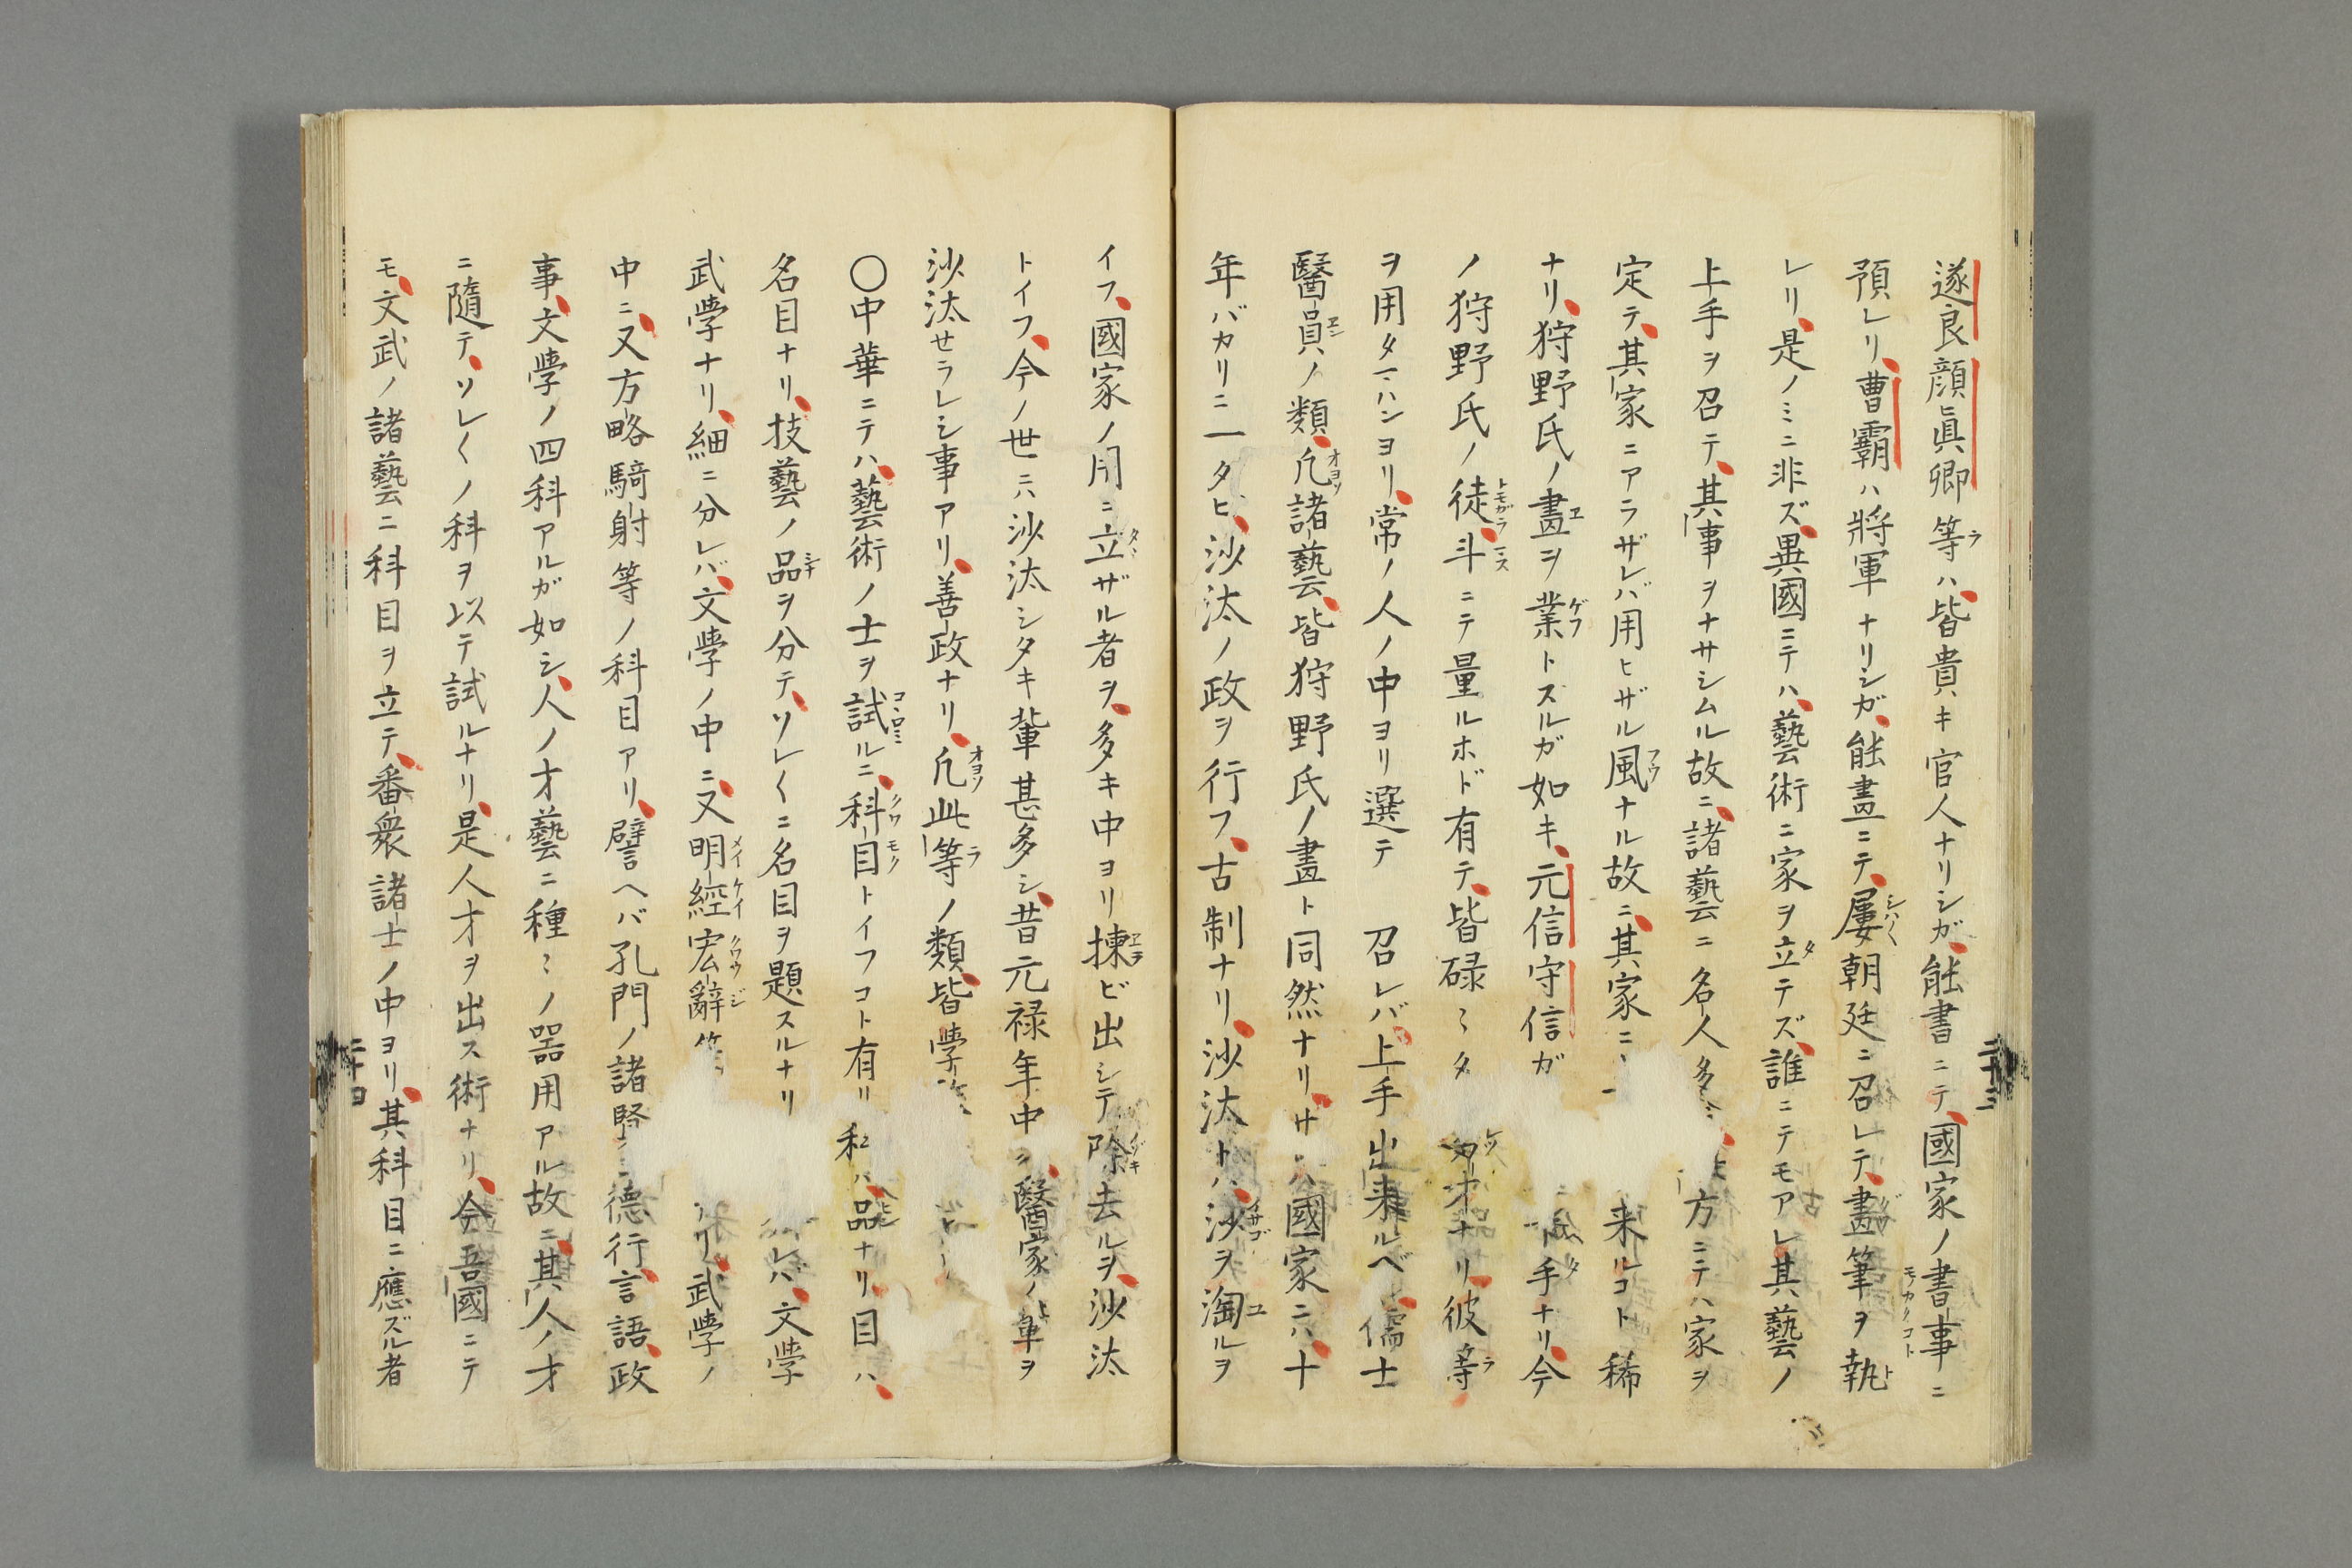 遂良顔眞卿等ハ、皆貴キ官人ナリシガ、能書ニテ、國家ノ書事ニ
預レリ、曹霸ハ將軍ナリシガ、能畫ニテ、屢朝廷ニ召レテ、畫筆ヲ執
レリ、是ノミニ非ズ、異國ニテハ、藝術ニ家ヲ立テズ、誰ニテモアレ其藝ノ
上手ヲ召テ、其事ヲナサシムル故ニ、諸藝ニ名人多 方ニテハ家ヲ
定テ、其家ニアラザレバ用ヒザル風ナル故ニ、其家ニ 来ルコト稀
ナリ、狩野氏ノ畫ヲ業トスルガ如キ、元信守信ガ 手ナリ、今
ノ狩野氏ノ徒、斗ニテ量ルホド有テ、皆碌〻タ 才ナリ、彼等
ヲ用タマハンヨリ、常ノ人ノ中ヨリ選テ 召レバ、上手出来ルベ 儒士
醫員ノ類、凡諸藝、皆狩野氏ノ畫ト同然ナリ、サ ハ國家ニハ、十
年バカリニ一タビ、沙汰ノ政ヲ行フ、古制ナリ、沙汰トハ、沙ヲ淘ルヲ
イフ、國家ノ用ニ立ザル者ヲ、多キ中ヨリ揀ビ出シテ除去ルヲ、沙汰
トイフ、今ノ世ニハ沙汰シタキ輩甚多シ、昔元禄年中ニ、醫家ノ輩ヲ
沙汰セラレシ事アリ、善政ナリ、凡此等ノ類、皆學
〇中華ニテハ、藝術ノ士ヲ試ルニ、科目トイフコト有リ 科ハ、品ナリ、目ハ、
名目ナリ、技藝ノ品ヲ分テ、ソレ〱ニ名目ヲ題スルナリ レバ、文學
武學ナリ、細ニ分レバ、文學ノ中ニ、又明經宏辭等 リ、武學ノ
中ニ、又方略騎射等ノ科目アリ、譬ヘバ孔門ノ諸賢 德行、言語、政
事、文學ノ四科アルガ如シ、人ノ才藝ニ種〻ノ器用アル故ニ、其人ノ才
ニ隨テ、ソレ〱ノ科ヲ以テ試ルナリ、是人才ヲ出ス術ナリ、今吾國ニテ
モ、文武ノ諸藝ニ科目ヲ立テ、番衆諸士ノ中ヨリ、其科目ニ應ズル者